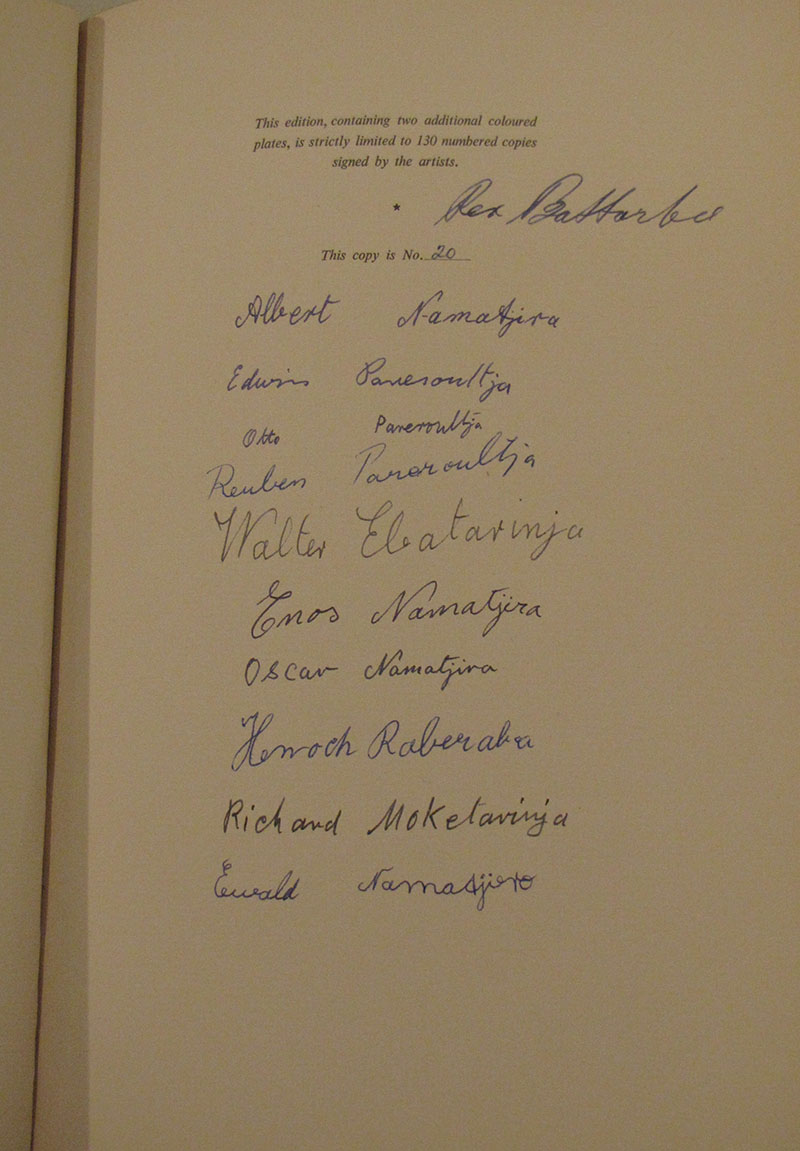 This edition, containing two additional coloured
plates, is strictly limited to 130 numbered copies
signed by the artists.
* Rex Battarbee
This copy is No. 20
Albert Namatjira
Edwin Pareroultja
Otto Pareroultja
Reuben Pareroultja
Walter Ebatarinja
Enos Namatjira
Oscar Namatjira
Henoch Raberaba
Richard Moketarinja
Ewald Namatjira